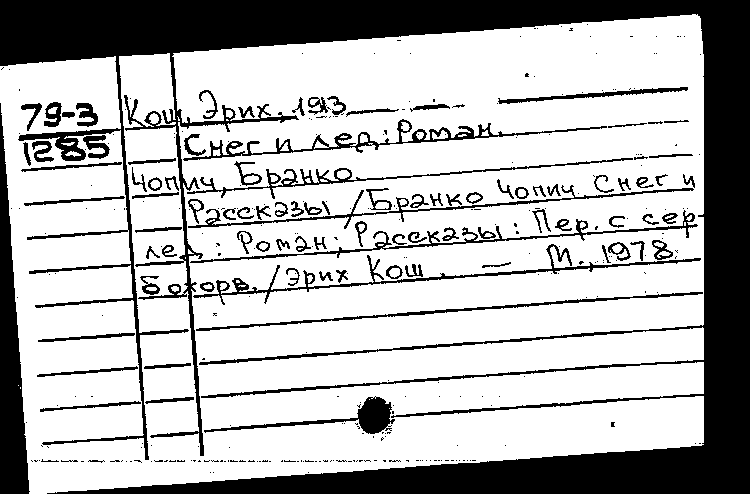 79-3
1285
Кош, Эрих, 1913
Снег и лед: Роман.
Чопич, Бранко.
Рассказы / Бранко Чопич. Снег и
лед: Роман; Рассказы: Пер. с сер-
бохорв. / Эрих Кош. — М., 1978